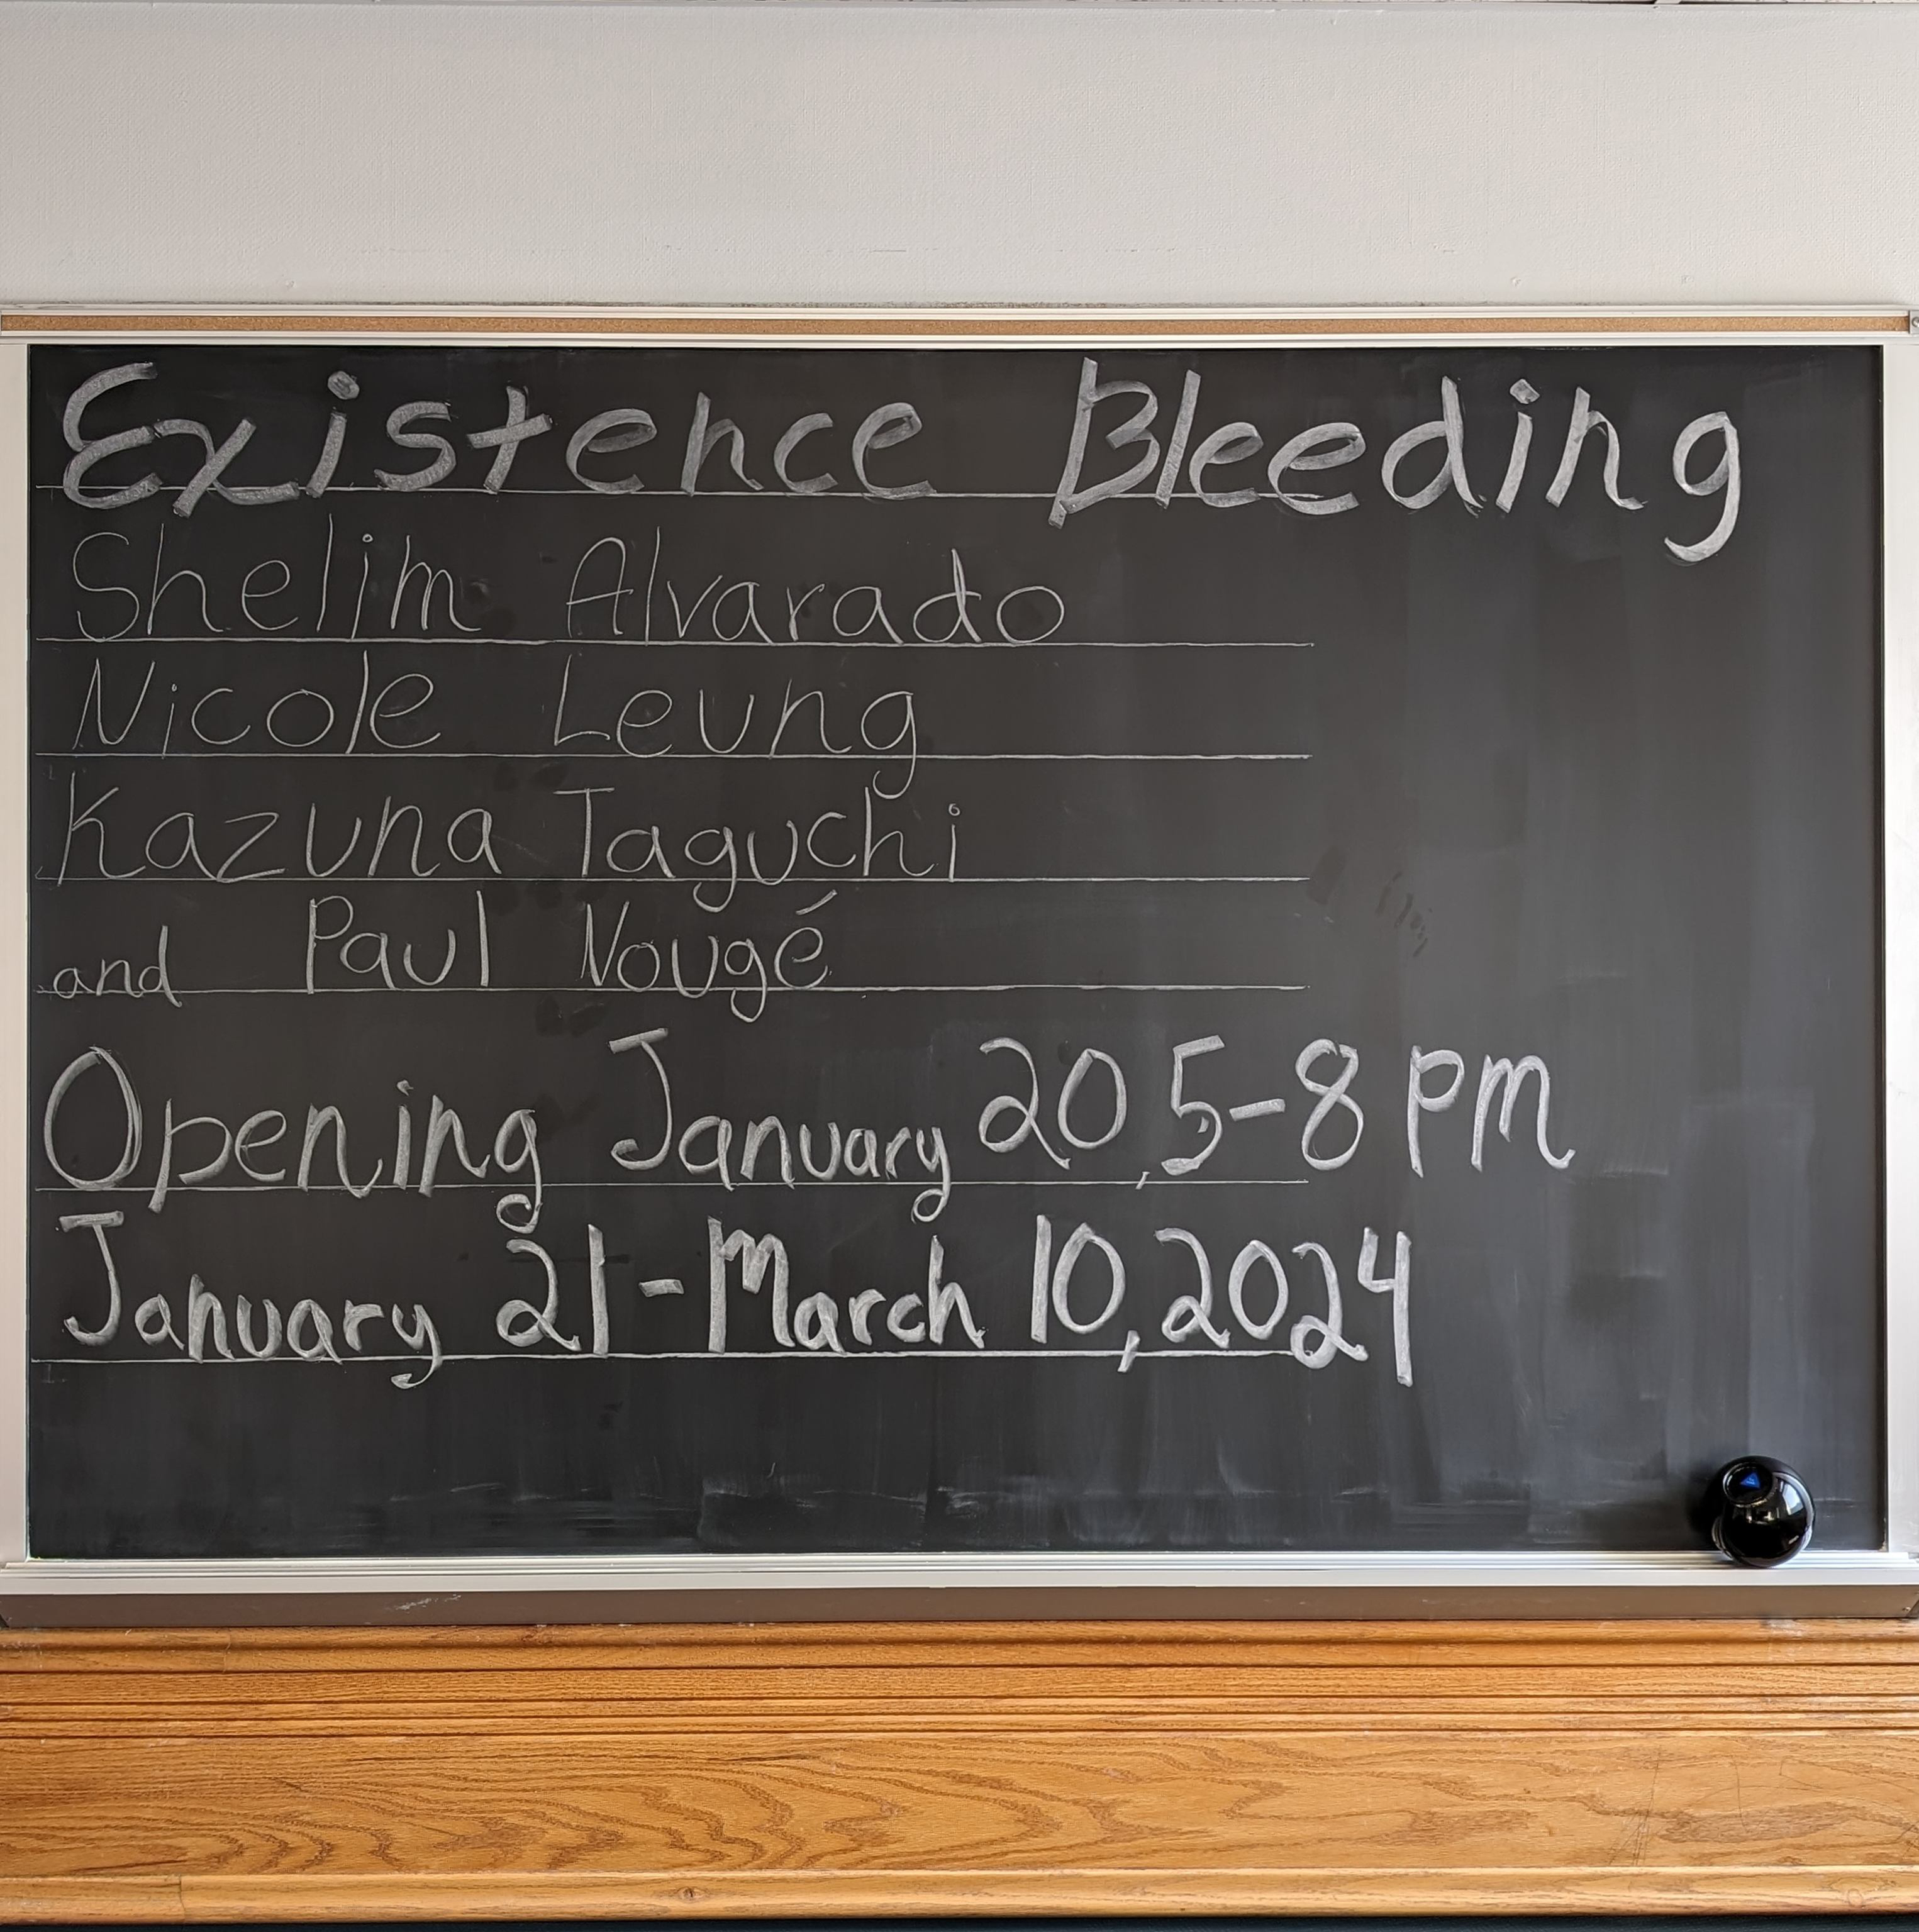 Existence Bleeding
Shelim Alvarado
Nicole Leung
Kazuna Taguchi
and Paul Nougé
Opening January 20, 5-8 pm
January 21 - March 10, 2024